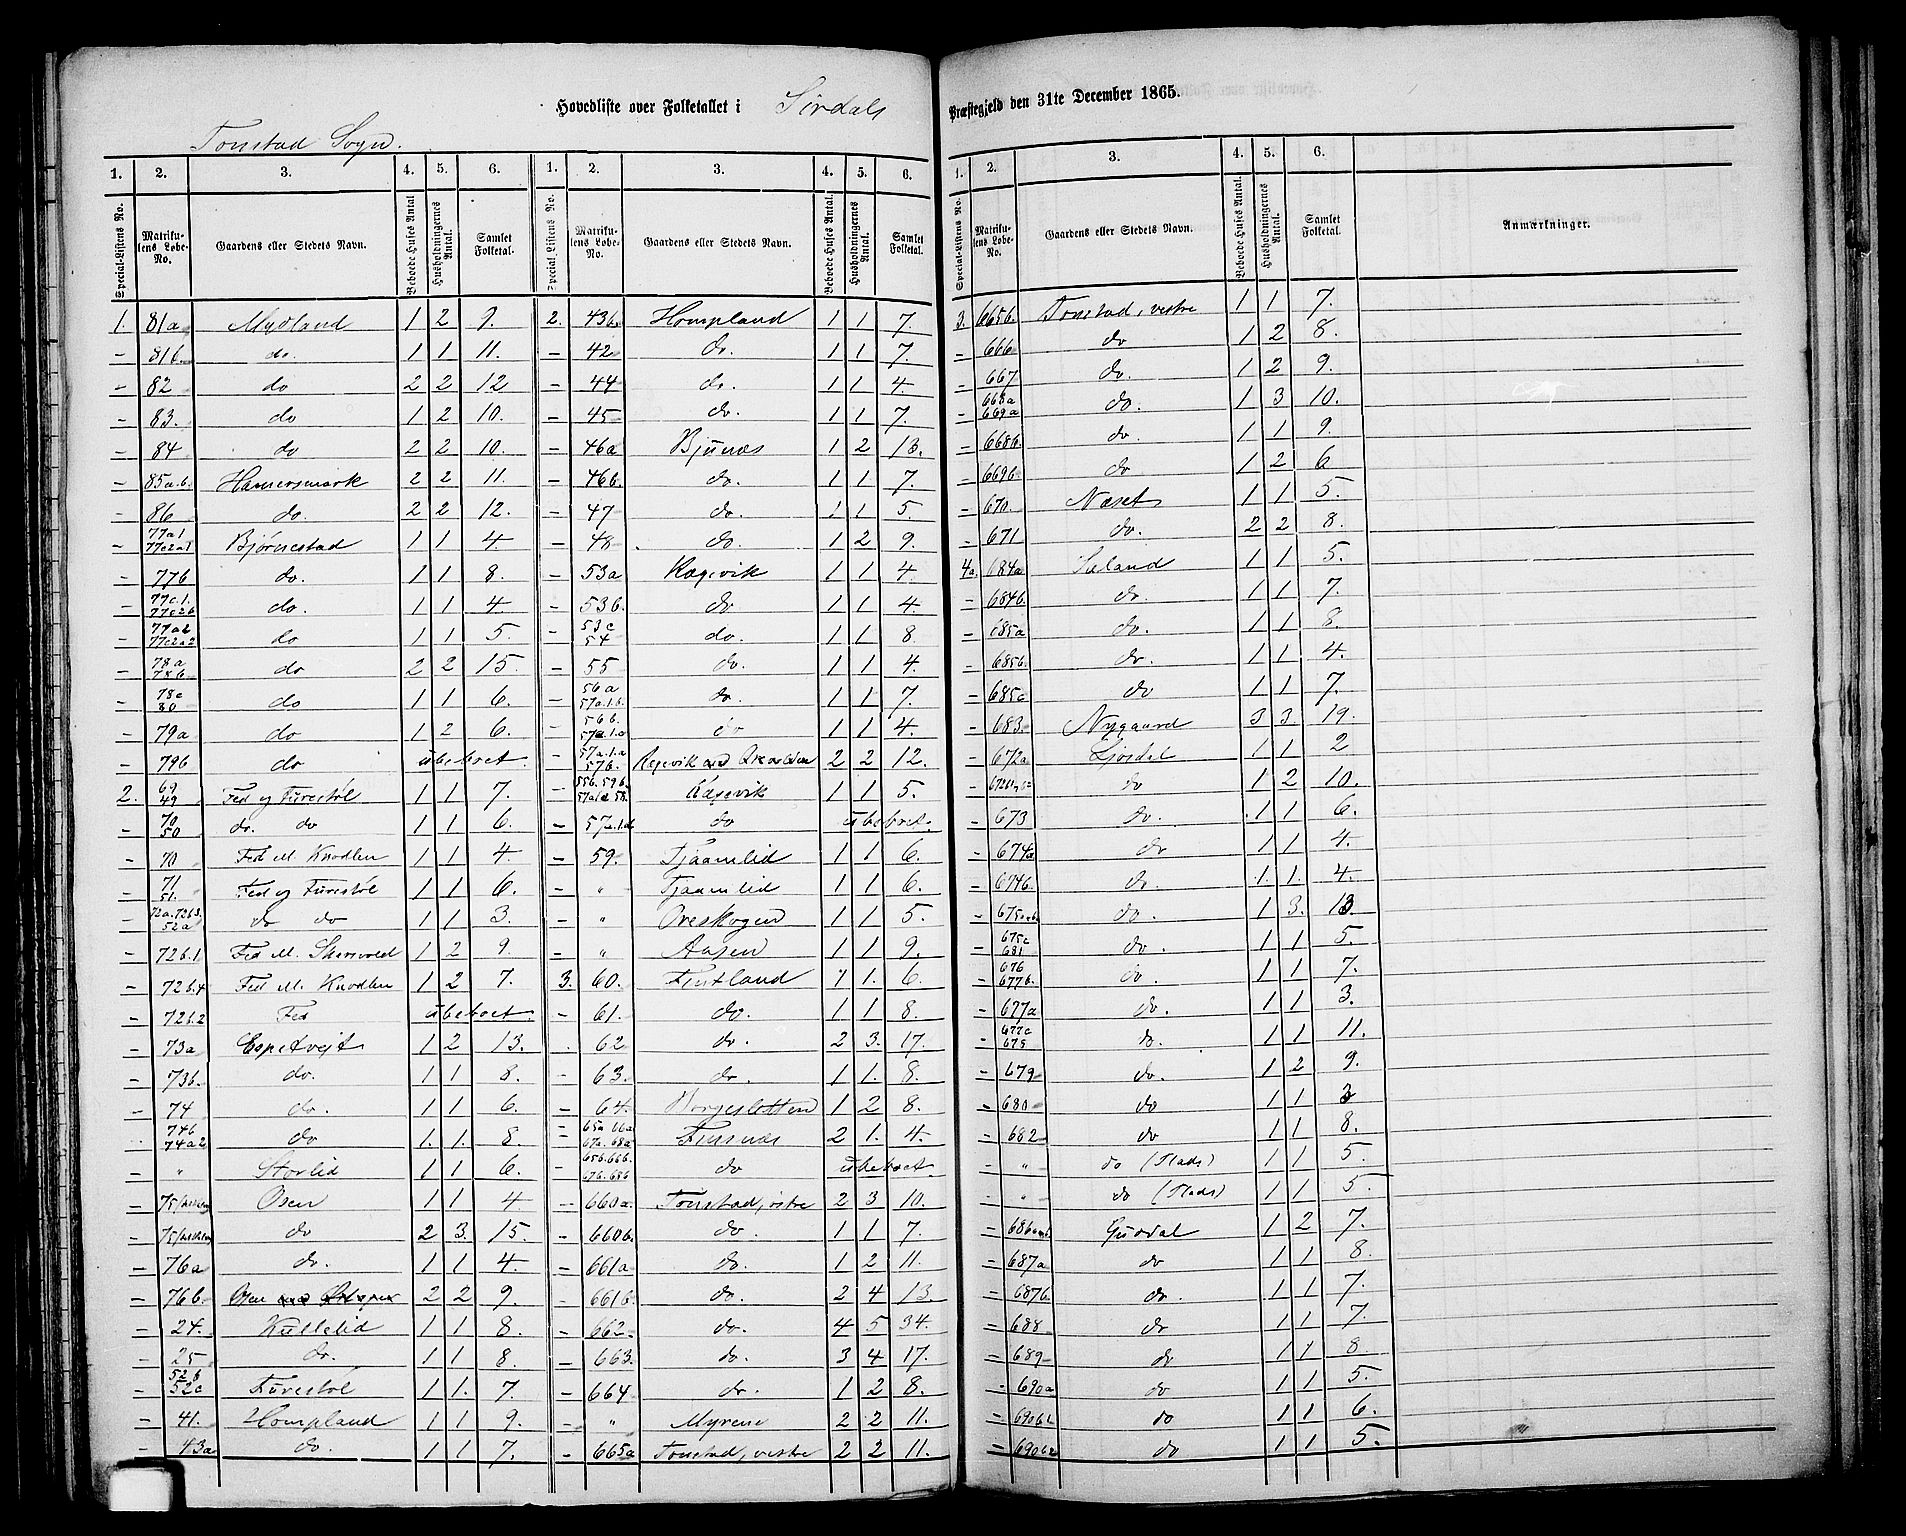 Hovedliste over Folketallet i Sirdals Præstegjeld den 31te December 1865.
Tonstad Sogn.
1. 2. 3. 4. 5. 6. 1. 2. 3. 4. 5. 6.
Special-Listens No. Matrikulens Løbe-No. Gaardens eller Stedets Navn. Beboede Huses Antal. Husholdningernes Antal. Samlet Folketal. Special-Listens No. Matrikulens Løbe-No. Gaardens eller Stedets Navn. Beboede Huses Antal. Husholdningernes Antal. Samlet Folketal.
1. 81a Mydland 1 2 9. 2. 43b. Hompland 1 1 7.
- 81b. do. 1 1 11. - 42 do. 1 1 7.
- 82 do 2 2 12 - 44 do. 1 1 4.
- 83. do 1 2 10. - 45 do. 1 1 7.
- 84 do 2 2 10. - 46a Bjunæs 1 2 13.
- 85a.b. Hamersmark 2 2 11. - 46b. do. 1 1 7.
- 86 do. 2 2 12. - 47 do. 1 1 5.
- 77a1 77c2a1 Bjørnestad 1 1 4. - 48 do. 1 2 9.
- 77b do. 1 1 8. - 53a Kagevik 1 1 4.
- 77c.1. 77c2b do. 1 1 4 - 53b. do 1 1 4.
- 77a2 77c2a2 do 1 1 5. - 53c 54 do. 1 1 8.
- 78a 78b do 2 2 15. - 55 do. 1 1 4.
- 78c 80 do 1 1 6. - 56a 57a.1.b. do. 1 1 7.
- 79a do 1 2 6. - 56b. 57a.1.c do 1 1 4.
- 79b do ubeboet. - 57a.1.a 57b. Kagevik med 2 2 12.
2. 69 49 Fed og Furestøl 1 1 7. - Kagevik 1 1 5.
- 70 50 do. do 1 1 6. - 57a.1.d. do ubeboet.
- 70 Fed M. Knodlen 1 1 4. - 59. Tjaamlid 1 1 6.
- 71 51. Fed og Furestøl 1 1 6. - " Tjaamlid 1 1 6.
- 72a.72b3. 52a do do 1 1 3. - " Øreskogen 1 1 5.
- 72b.1 Fed M. 1 2 9. - " Aasen 1 1 9.
- 72b.4 Fed M. Knodlen 1 2 7. 3. 60. Fintland 1 1. 6.
- 72b.2 Fed ubeboet. - 61. do. 1 1 8.
- 73a Espetvejt 1 2 13. 62 do. 2 3. 17.
- 73b. do. 1 1 8. - 63. do. 1 1. 8.
- 74 do. 1 1 6. - 64. Borgesletten 1 2 8.
74b 74a2 do 1. 1. 8. - 65a 66a 67a. 68a Finsnæs 2 1. 4.
- " Storlid 1 1 6. - 65b.66b. 67b.68b do ubeboet.
- 75 Osen 1 1 4 - 660a. Tonstad, østre 2 3 10.
- 75 do 2 3. 15. - 660b. do. 1 1 7.
- 76a do. 1 1 4 - 661a do. 1 2 11.
- 76b. Osen 2 2 9. - 661b. do. 2 4 13.
- 24. Kullelid 1 1 8. - 662 do. 4 5 34.
- 25 do. 1 1 8. - 663. do. 3 4 17.
- 52b 52c Furestøl 1 1. 7. - 664 do. 1 2 8.
- 41. Hompland 1 1 9. - " Myrene 2 2 11.
- 43a do. 1 1 7. - 665a Tonstad, vestre 2 2 11.
1. 2. 3. 4. 5. 6.
Special-Listens No. Matrikulens Løbe-No. Gaardens eller Stedets Navn. Beboede Huses Antal. Husholdningernes Antal. Samlet Folketal. Anmærkninger.
3. 665b. Tonstad, vestre 1 1 7.
- 666 do 1 2 8.
- 667 do. 1 2 9.
- 668a 669a do. 1 3 10.
- 668b. do 1 1 9.
- 669b. do 1 2 6
- 670. Næset 1 1 5.
- 671 do. 2 2 8.
4a. 684a Sæland 1 1 5.
- 684b. do. 1 1 7.
- 685a do. 1 1 8.
- 685b. do. 1 1 4.
- 685c do 1 1 7.
- 683. Nygaard 3 3. 19.
- 672a Ljosdal 1 1 2
- do 1 2 10.
- 673 do. 1 1 6.
- 674a do 1 1 4.
- 674b. do. 1. 1. 4.
- do. 1 3. 13.
- 675c 681 do. 1 1 5.
- 676 677b. do. 1 1 7.
- 677a do. 1 1 3.
- 677c 678 do. 1 1 11.
- 679 do. 1 2 9.
- 680 do 1 1 3
- 682 do 1 1 8.
- " do (Plads) 1 1 5.
- " do (Plads) 1 1 5.
- Guddal 1 2 7.
- 687a do 1 1 8.
- 687b. do. 1 1 7.
- 688 do 1 1 7.
- 689 do 1 1 8
- 690a do 1 1 5.
- 690b1 do 1 1 6.
- 690b2 do 1 1 5.